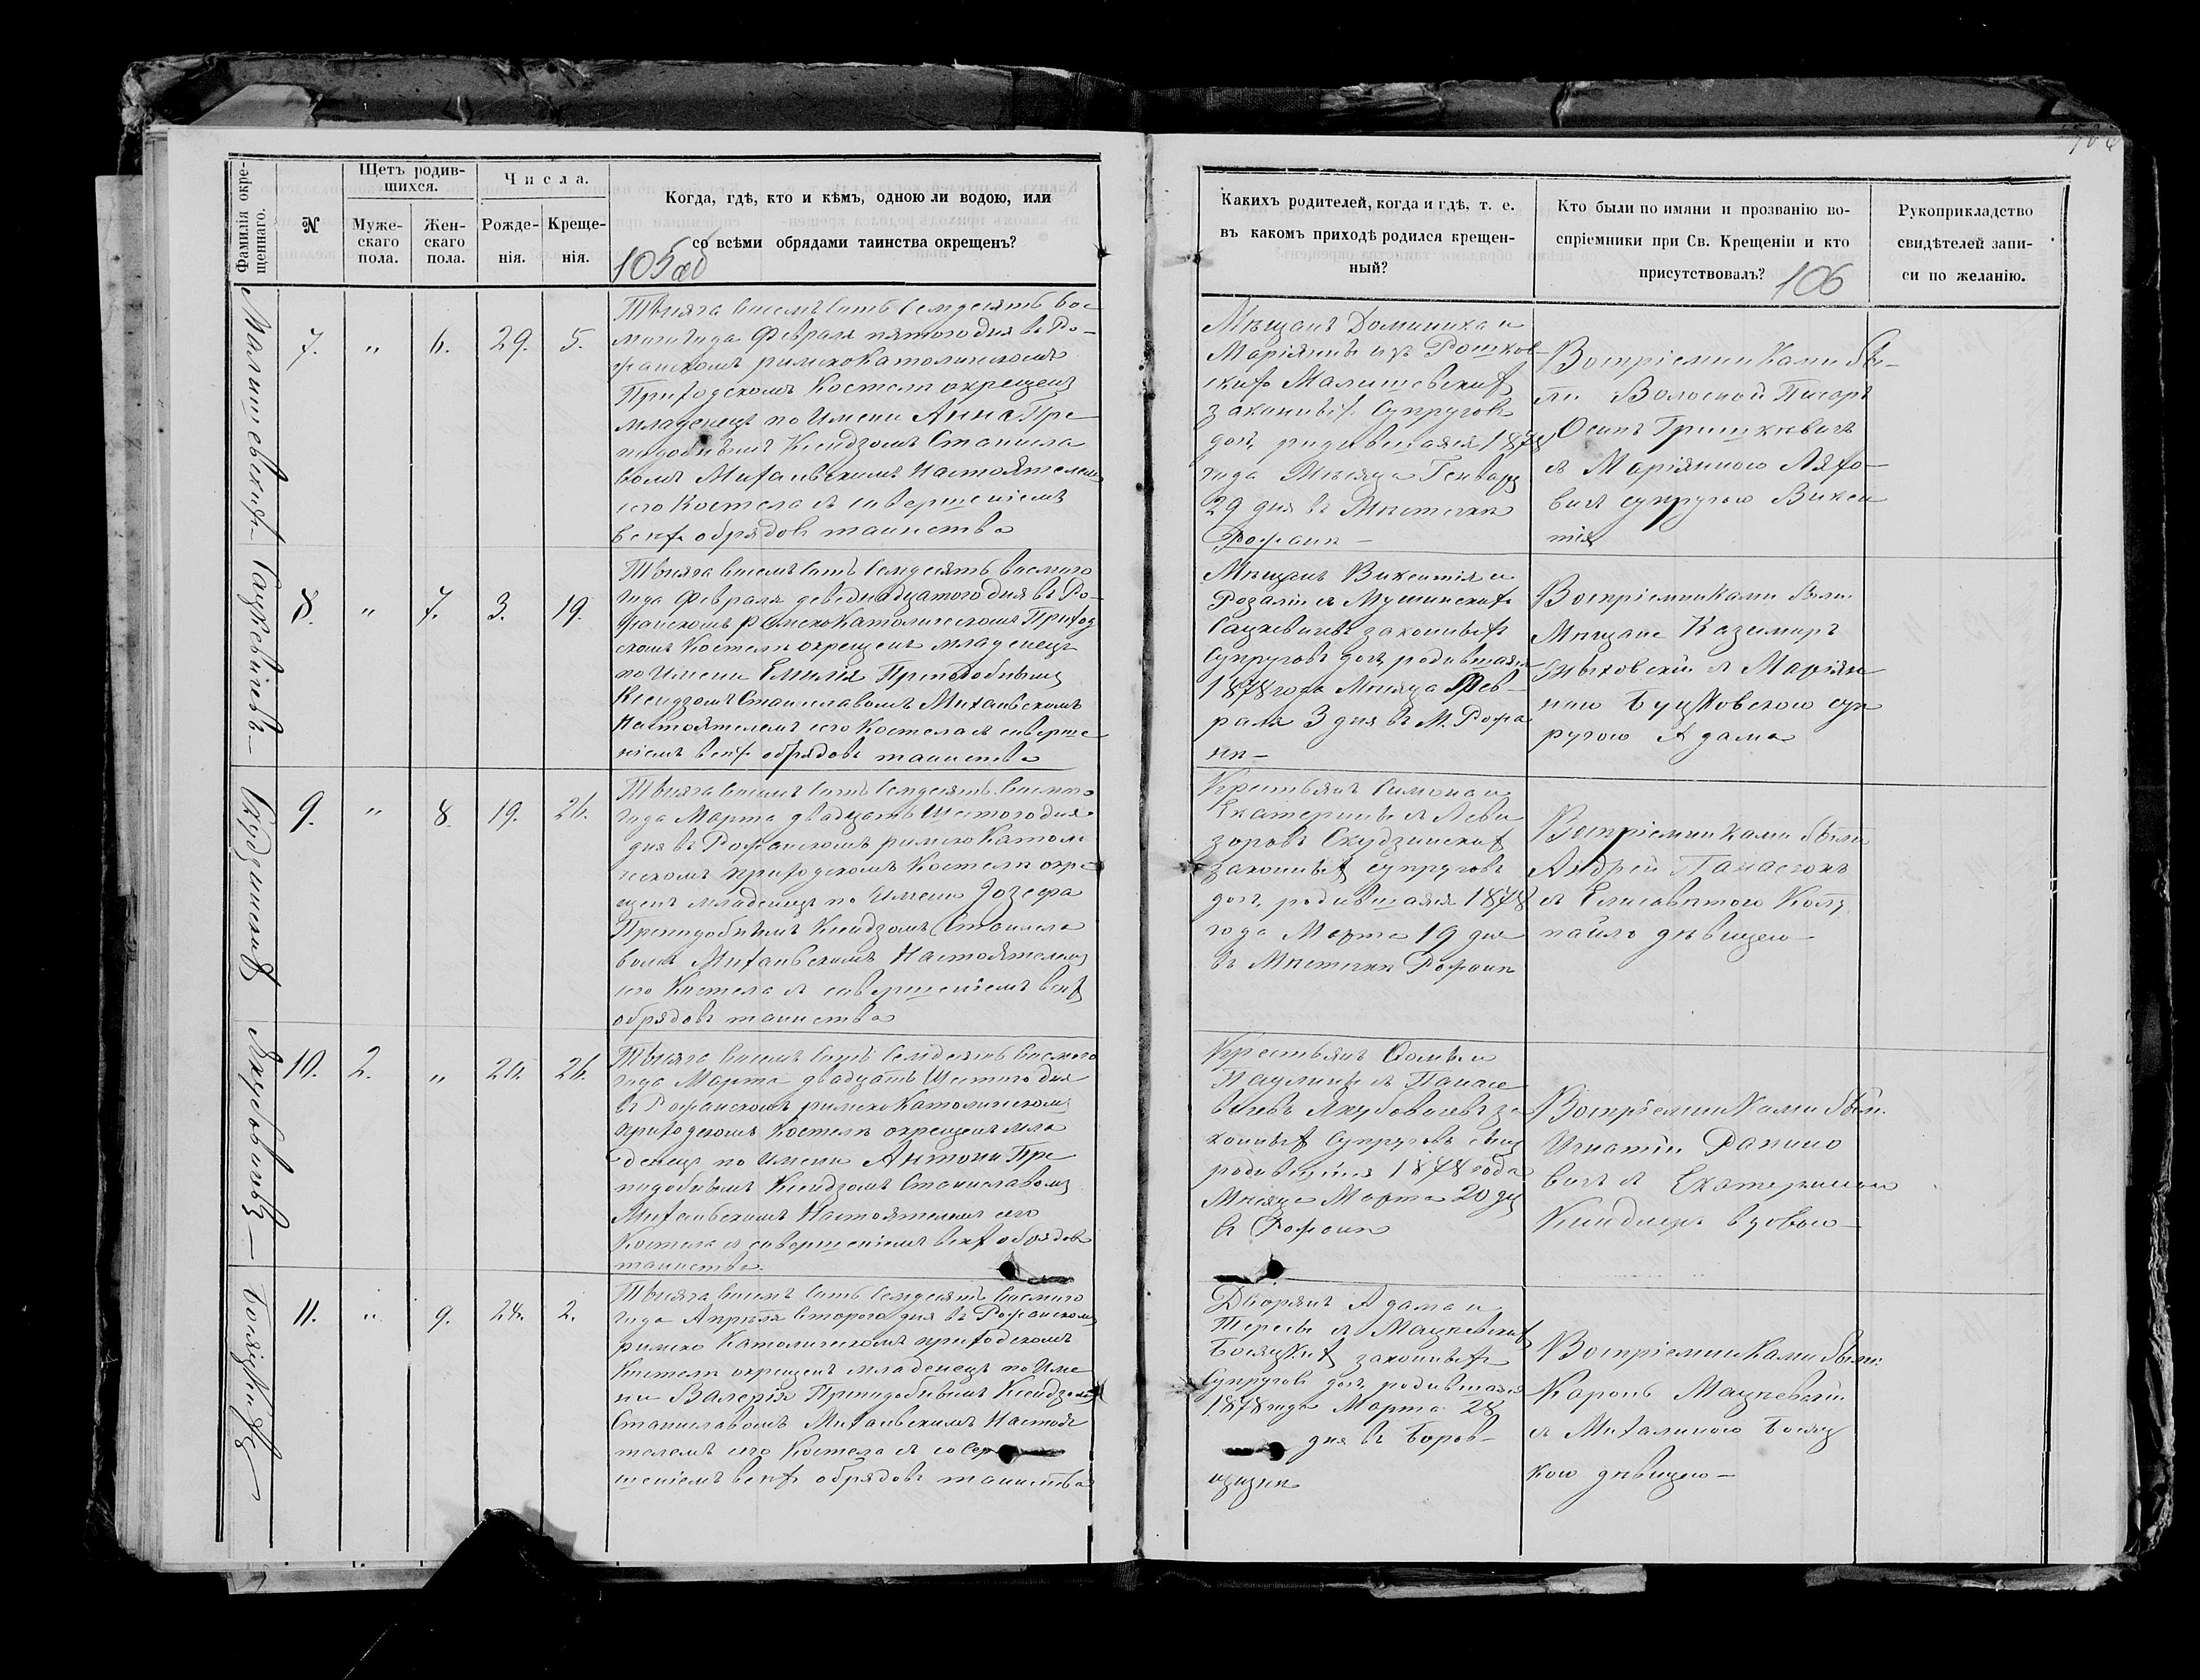 Фамилія окре-
щеннаго.
№
Щетъ родив-
шихся.
Муже-
скаго
пола.
Жен-
скаго
пола.
Числа.
Рожде-
нія.
Креще-
нія.
Когда, гдѣ, кто и кѣмъ, одною ли водою, или
со всѣми обрядами таинства окрещенъ?
105об
Малишевскихъ
7.
"
6.
29.
5.
Тысяча восемъ сотъ семдесятъ вос
мого года Февраля пятого дня въ Ро-
жанскомъ римско Католическомъ
Приходскомъ Костелѣ окрещенъ
младенецъ по имени Анна Пре
подобнымъ Ксендзомъ Станисла
вомъ Михальскимъ Настоятелемъ
сего Костела съ совершеніемъ
всѣхъ обрядовъ таинства
Сацкевичевъ
8.
"
7.
3.
19.
Тысяча восемъ сотъ семдесятъ восмого
года Февраля деведнадцатого дня въ Ро-
жанскомъ римско Католическомъ Приход
скомъ Костелѣ окрещенъ младенецъ
по имени Емилія Преподобнымъ
Ксендзомъ Станиславомъ Михальскимъ
Настоятелемъ сего Костела съ соверше
ніемъ всѣхъ обрядовъ таинства
Скудзинскихъ
9.
"
8.
19.
26.
Тысяча восемъ сотъ семдесятъ восмого
года Марта двадцать шестого дня
дня въ Рожанскомъ римско Католи
ческомъ приходскомъ Костелѣ окре
щенъ младенецъ по имени Іозефа
Преподобнымъ Ксендзомъ Станисла
вомъ Михальскимъ Настоятелемъ
сего Костела съ совершеніемъ всѣхъ
обрядовъ таинства
Якубовичевъ
10.
2.
"
20.
26.
Тысяча восемъ сотъ семдесятъ восмого
года Марта двадцать шестого дня
въ Рожанскомъ римско Католическомъ
приходскомъ Костелѣ окрещенъ мла
денецъ по имени Антони Пре
подобнымъ Ксендзомъ Станиславомъ
Михальскимъ Настоятелемъ сего
Костела съ совершеніемъ всѣхъ обрядовъ
таинства
Босяцкихъ
11.
"
9.
28.
2.
Тысяча восемъ сотъ семдесятъ восмого
года Апрѣля второго дня въ Рожанскомъ
римско Католическомъ приходскомъ
Костелѣ окрещенъ младенецъ по име
ни Валерія Преподобнымъ Ксендзомъ
Станиславомъ Михальскимъ Настоя
телемъ сего Костела съ совер
шеніемъ всѣхъ обрядовъ таинства
106
Какихъ родителей, когда и гдѣ, т. е.
въ какомъ приходѣ родился крещен-
ный?
Кто были по имяни и прозванію во-
спріемники при Св. Крещеніи и кто
присутствовалъ? 106
Рукоприкладство
свидѣтелей запи-
си по желанію.
Мѣщанъ Доминика и
Маріянны изъ Рошков-
скихъ Малишевскихъ
законныхъ супруговъ
дочь родившаяся 1878
года Мѣсяца Генваря
29 дня въ Мѣстечкѣ
Рожанѣ
Воспріемниками бы-
ли Волосной Писарь
Осипъ
съ Маріянною Ляхо-
вичъ супругою Викен
тія
Мѣщанъ Викентія и
Розаліи съ Мушинскихъ
Сацкевичевъ законныхъ
супруговъ дочь родившаяся
1878 года Мѣсяца Фев-
раля 3 дня въ М. Рожа
нѣ
Воспріемниками были
Мѣщане Каземиръ
съ Маріян
ною Буцковскою суп
ругою Адама
Крестьянъ Симона и
Екатерины съ Леви
зоровъ Скудзинскихъ
законныхъ супруговъ
дочь родившаяся 1878
года Марта 19 дня
въ Мѣстечкѣ Рожанѣ
Воспріемниками были
Андрей Панасюкъ
съ Елисаветою
дѣвицею
Крестьянъ Фомы и
Паулины съ Панасе
вичевъ Якубовичевъ за
конныхъ супруговъ сынъ
родившійся 1878 года
Мѣсяца Марта 20 дн
въ Рожанѣ
Воспріемниками были
Игнатій Рапино
вичъ съ Екатериною
вдовою
Дворянъ Адама и
Тересы съ Мацкевскихъ
Босяцкихъ законныхъ
супруговъ дочь родившаяся
1878 года Марта 28
дня въ Боров-
щизнѣ
Воспріемниками были
Кароль Мацкевскій
съ Михалиною Босяц
кою дѣвицею